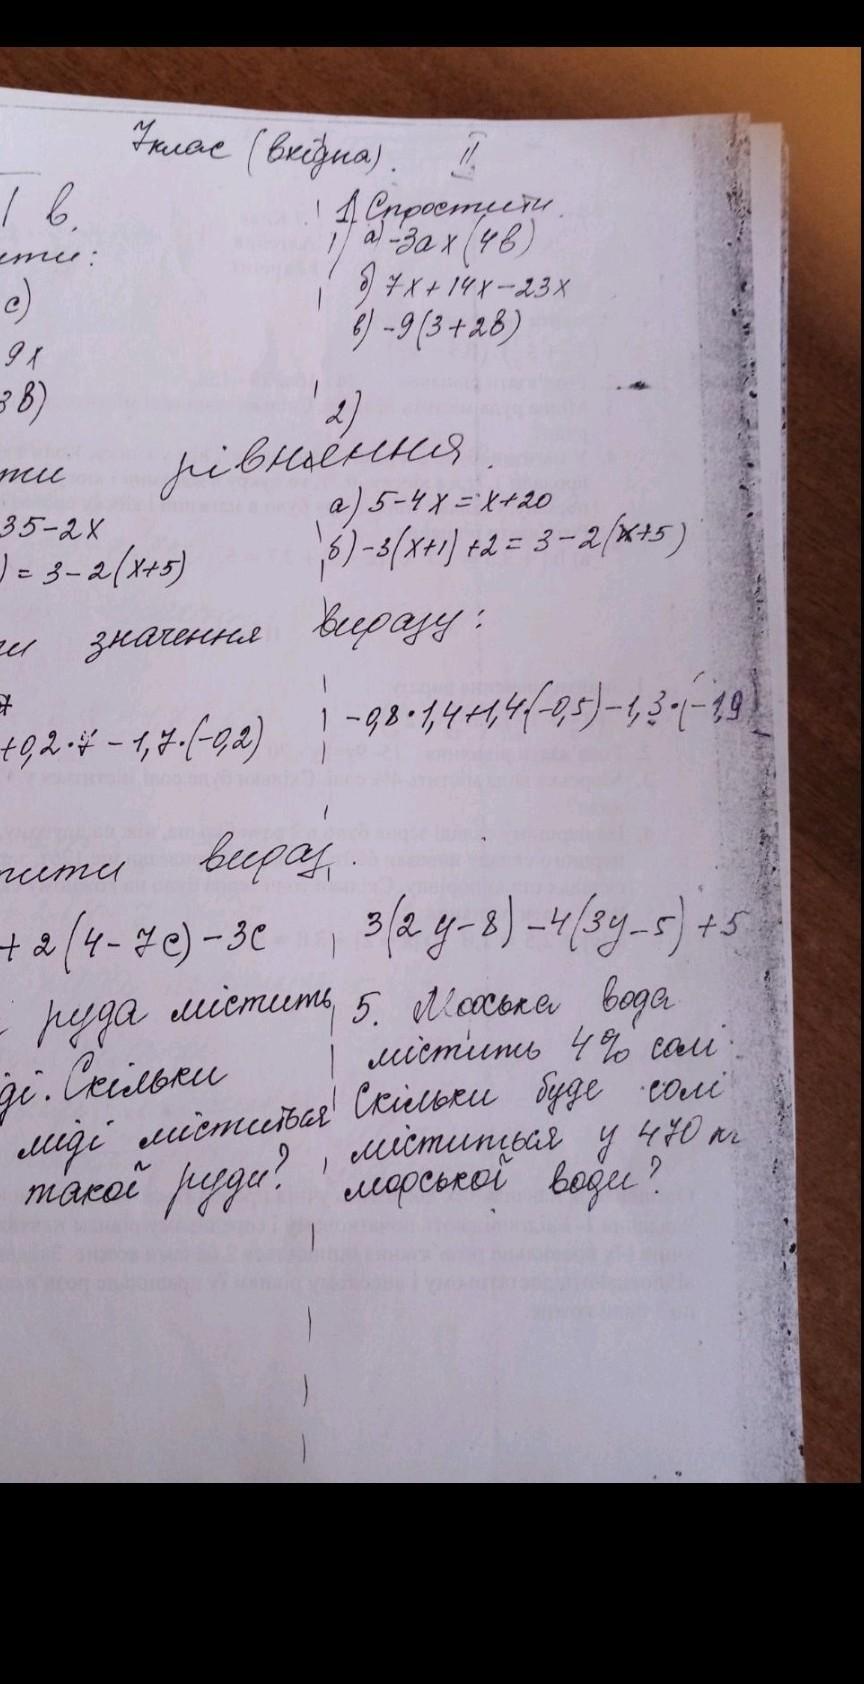 7клас (вхідна). II
І в.
ити:
с)
9х
3в)
1) Спростити.
а) -3а х (4в)
б) 7х+14х-23х
в) -9(3+2в)
2)
ти рівняння.
35-2х
) = 3-2(х+5)
а) 5-4х = х+20
б) -3(х+1)+2 = 3-2(х+5)
ти значення виразу:
+0,2·7-1,7·(-0,2)
-0,8·1,4+1,4·(-0,5)-1,3·(-1,9
тити вираз.
+ 2(4-7с)-3с
3(2у-8)-4(3у-5)+5
руда містить
ді. Скільки
міді міститься
такої руди?
5. Морська вода
містить 4% солі.
Скільки буде солі
міститься у 470 кг
морської води?